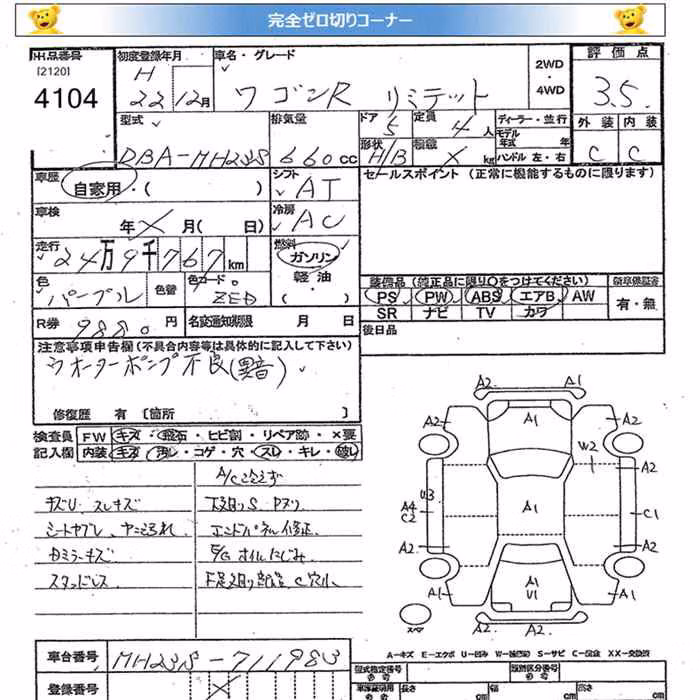 完全ゼロ切りコーナー
出品番号 初度登録年月 車名・グレード 2WD ・4WD 評価点
[2120] H
4104 22 12月 ワゴンR リミテット 3.5
型式 排気量 ドア 5 定員 4人 ディーラー・並行 外装 内装
モデル年式 年
DBA-MH23S 660cc 形状 H/B 積載 X kg ハンドル 左・右 C C
車歴 自家用・( ) シフト AT セールスポイント (正常に機能するものに限ります)
車検 年 X 月( 日) 冷房 AC
走行 24万9千767km 燃料 ガソリン 軽油・( )
色 パープル 色替 色コード ZED 装備品(純正品に限り○をつけてください)
PS PW ABS エアB AW 有・無
SR ナビ TV カワ
R券 9880円 名変通知期限 月 日 後日品
注意事項申告欄(不具合内容等は具体的に記入して下さい)
ウオーターポンプ不良(異音)
修復歴 有 [箇所 ]
検査員 FW キズ・飛石・ヒビ割・リペア跡・×要
記入欄 内装 キズ・汚レ・コゲ・穴・スレ・キレ・破レ
A/Cひえず
キズU スレキズ 下廻りS
シートヤブレ、ヤニよごれ エンドパネル修正
ミラーキズ E/Gオイルにじみ
スタッドレス
A2 A1
A2 A1 A2
W2
A2 A2
U3
A4 A1 C1
C2
A2 A2
A1 A1 A1
U1
スペア A2 A2
A-キズ E-エクボ U-凹み W-補修跡 S-サビ C-腐食 XX-交換済
車台番号 MH23S-711983 型式指定番号 類別区分番号
登録番号 X 長さ cm 幅 cm 高さ cm